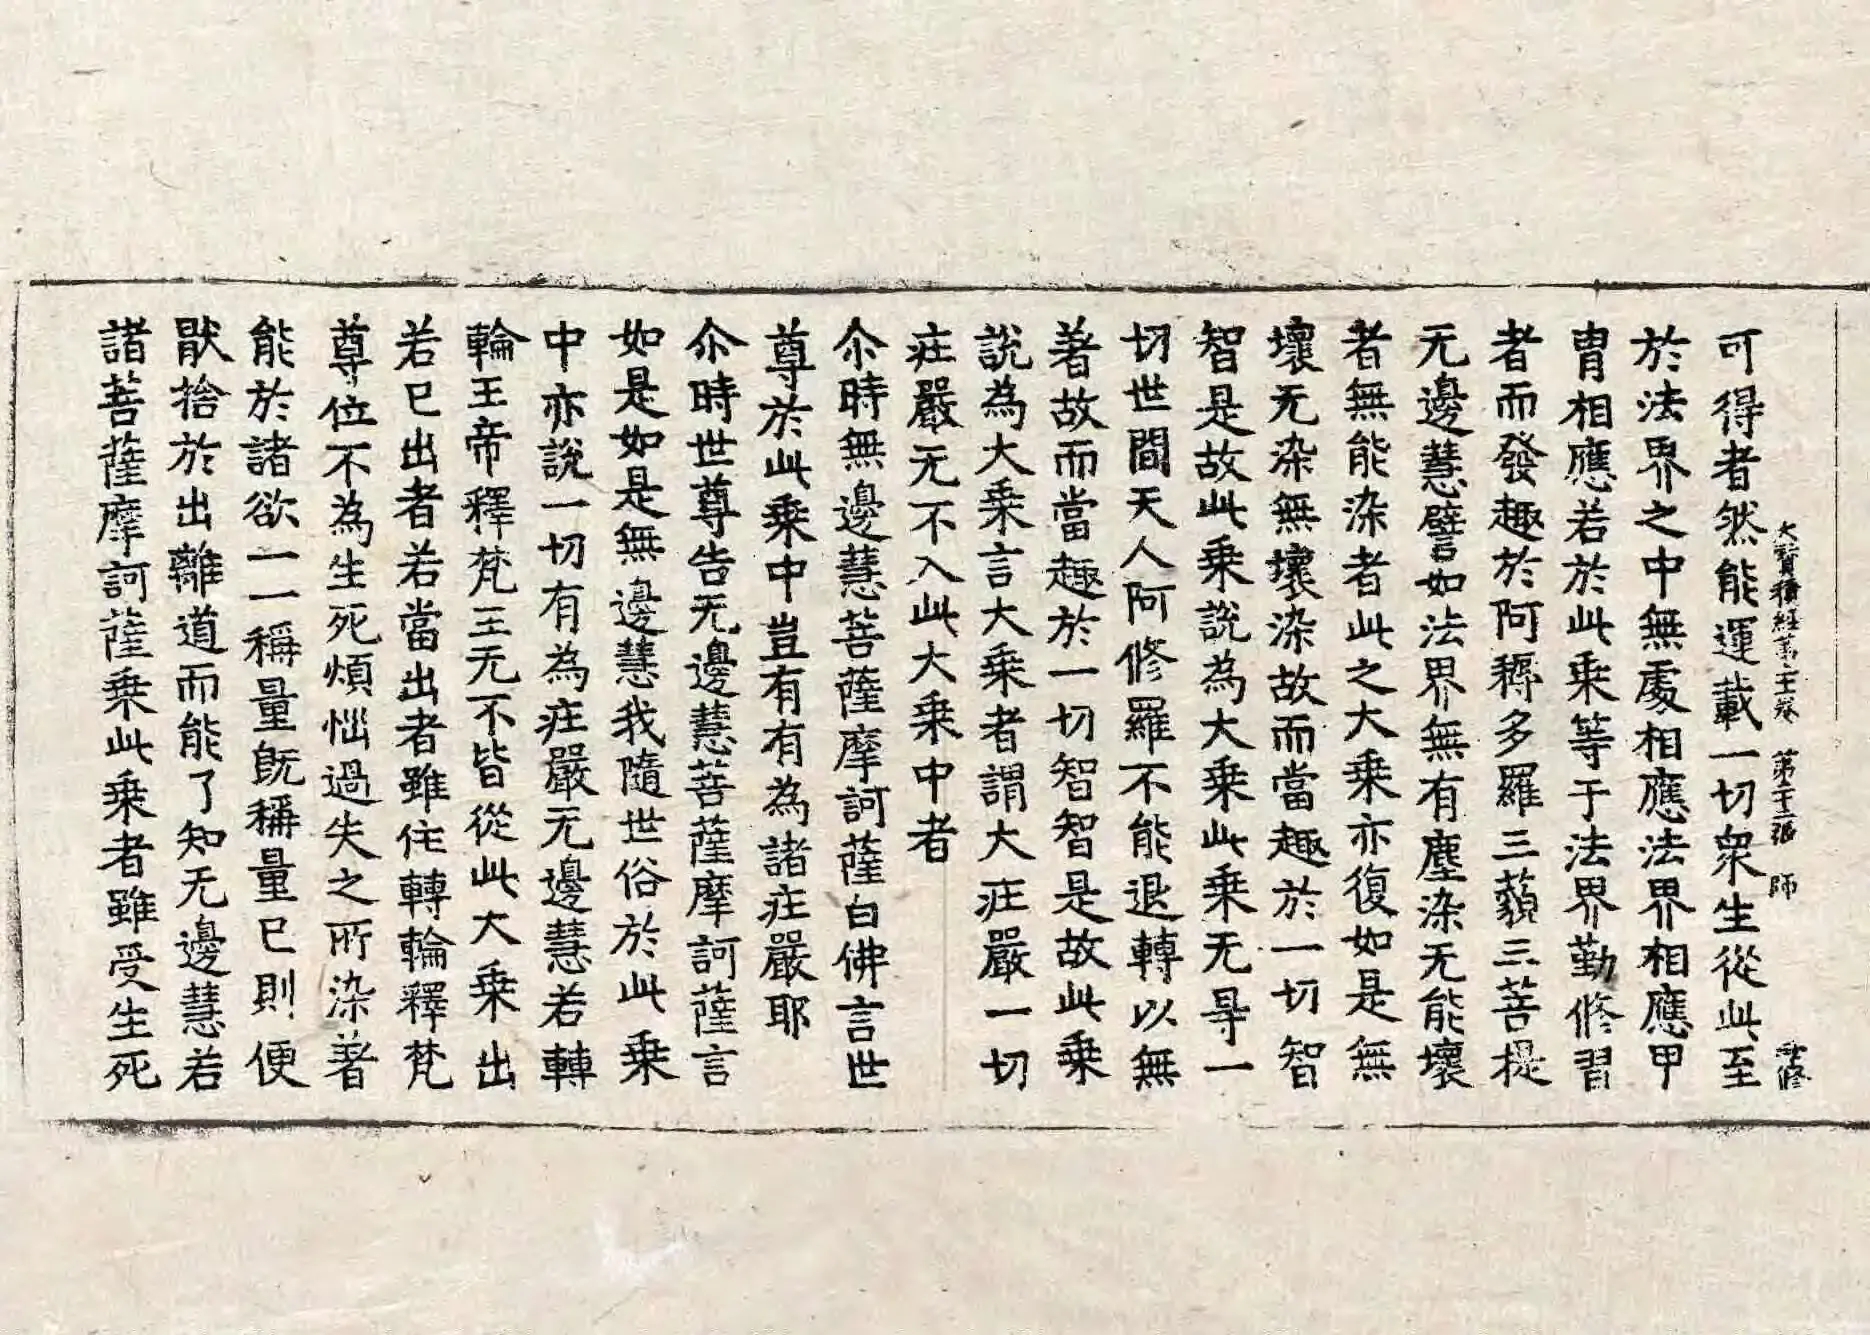 大寶積經第二十二卷 第十二張 師
可得者然能運載一切衆生從此至
於法界之中無處相應法界相應甲
冑相應若於此乗等于法界勤修習
者而發趣於阿耨多羅三藐三菩提
无邊慧譬如法界無有塵染无能壞
者無能染者此之大乗亦復如是無
壞无染無壞染故而當趣於一切智
智是故此乗說為大乗此乗无㝵一
切世間天人阿修羅不能退轉以無
著故而當趣於一切智智是故此乗
說為大乗言大乗者謂大庄嚴一切
庄嚴无不入此大乗中者
尒時無邊慧菩薩摩訶薩白佛言世
尊於此乗中豈有有為諸庄嚴耶
尒時世尊告无邊慧菩薩摩訶薩言
如是如是無邊慧我隨世俗於此乗
中亦說一切有為庄嚴无邊慧若轉
輪王帝釋梵王无不皆從此大乗出
若已出者若當出者雖住轉輪釋梵
尊位不為生死煩惱過失之所染著
能於諸欲一一稱量旣稱量已則便
猒捨於出離道而能了知无邊慧若
諸菩薩摩訶薩乗此乗者雖受生死